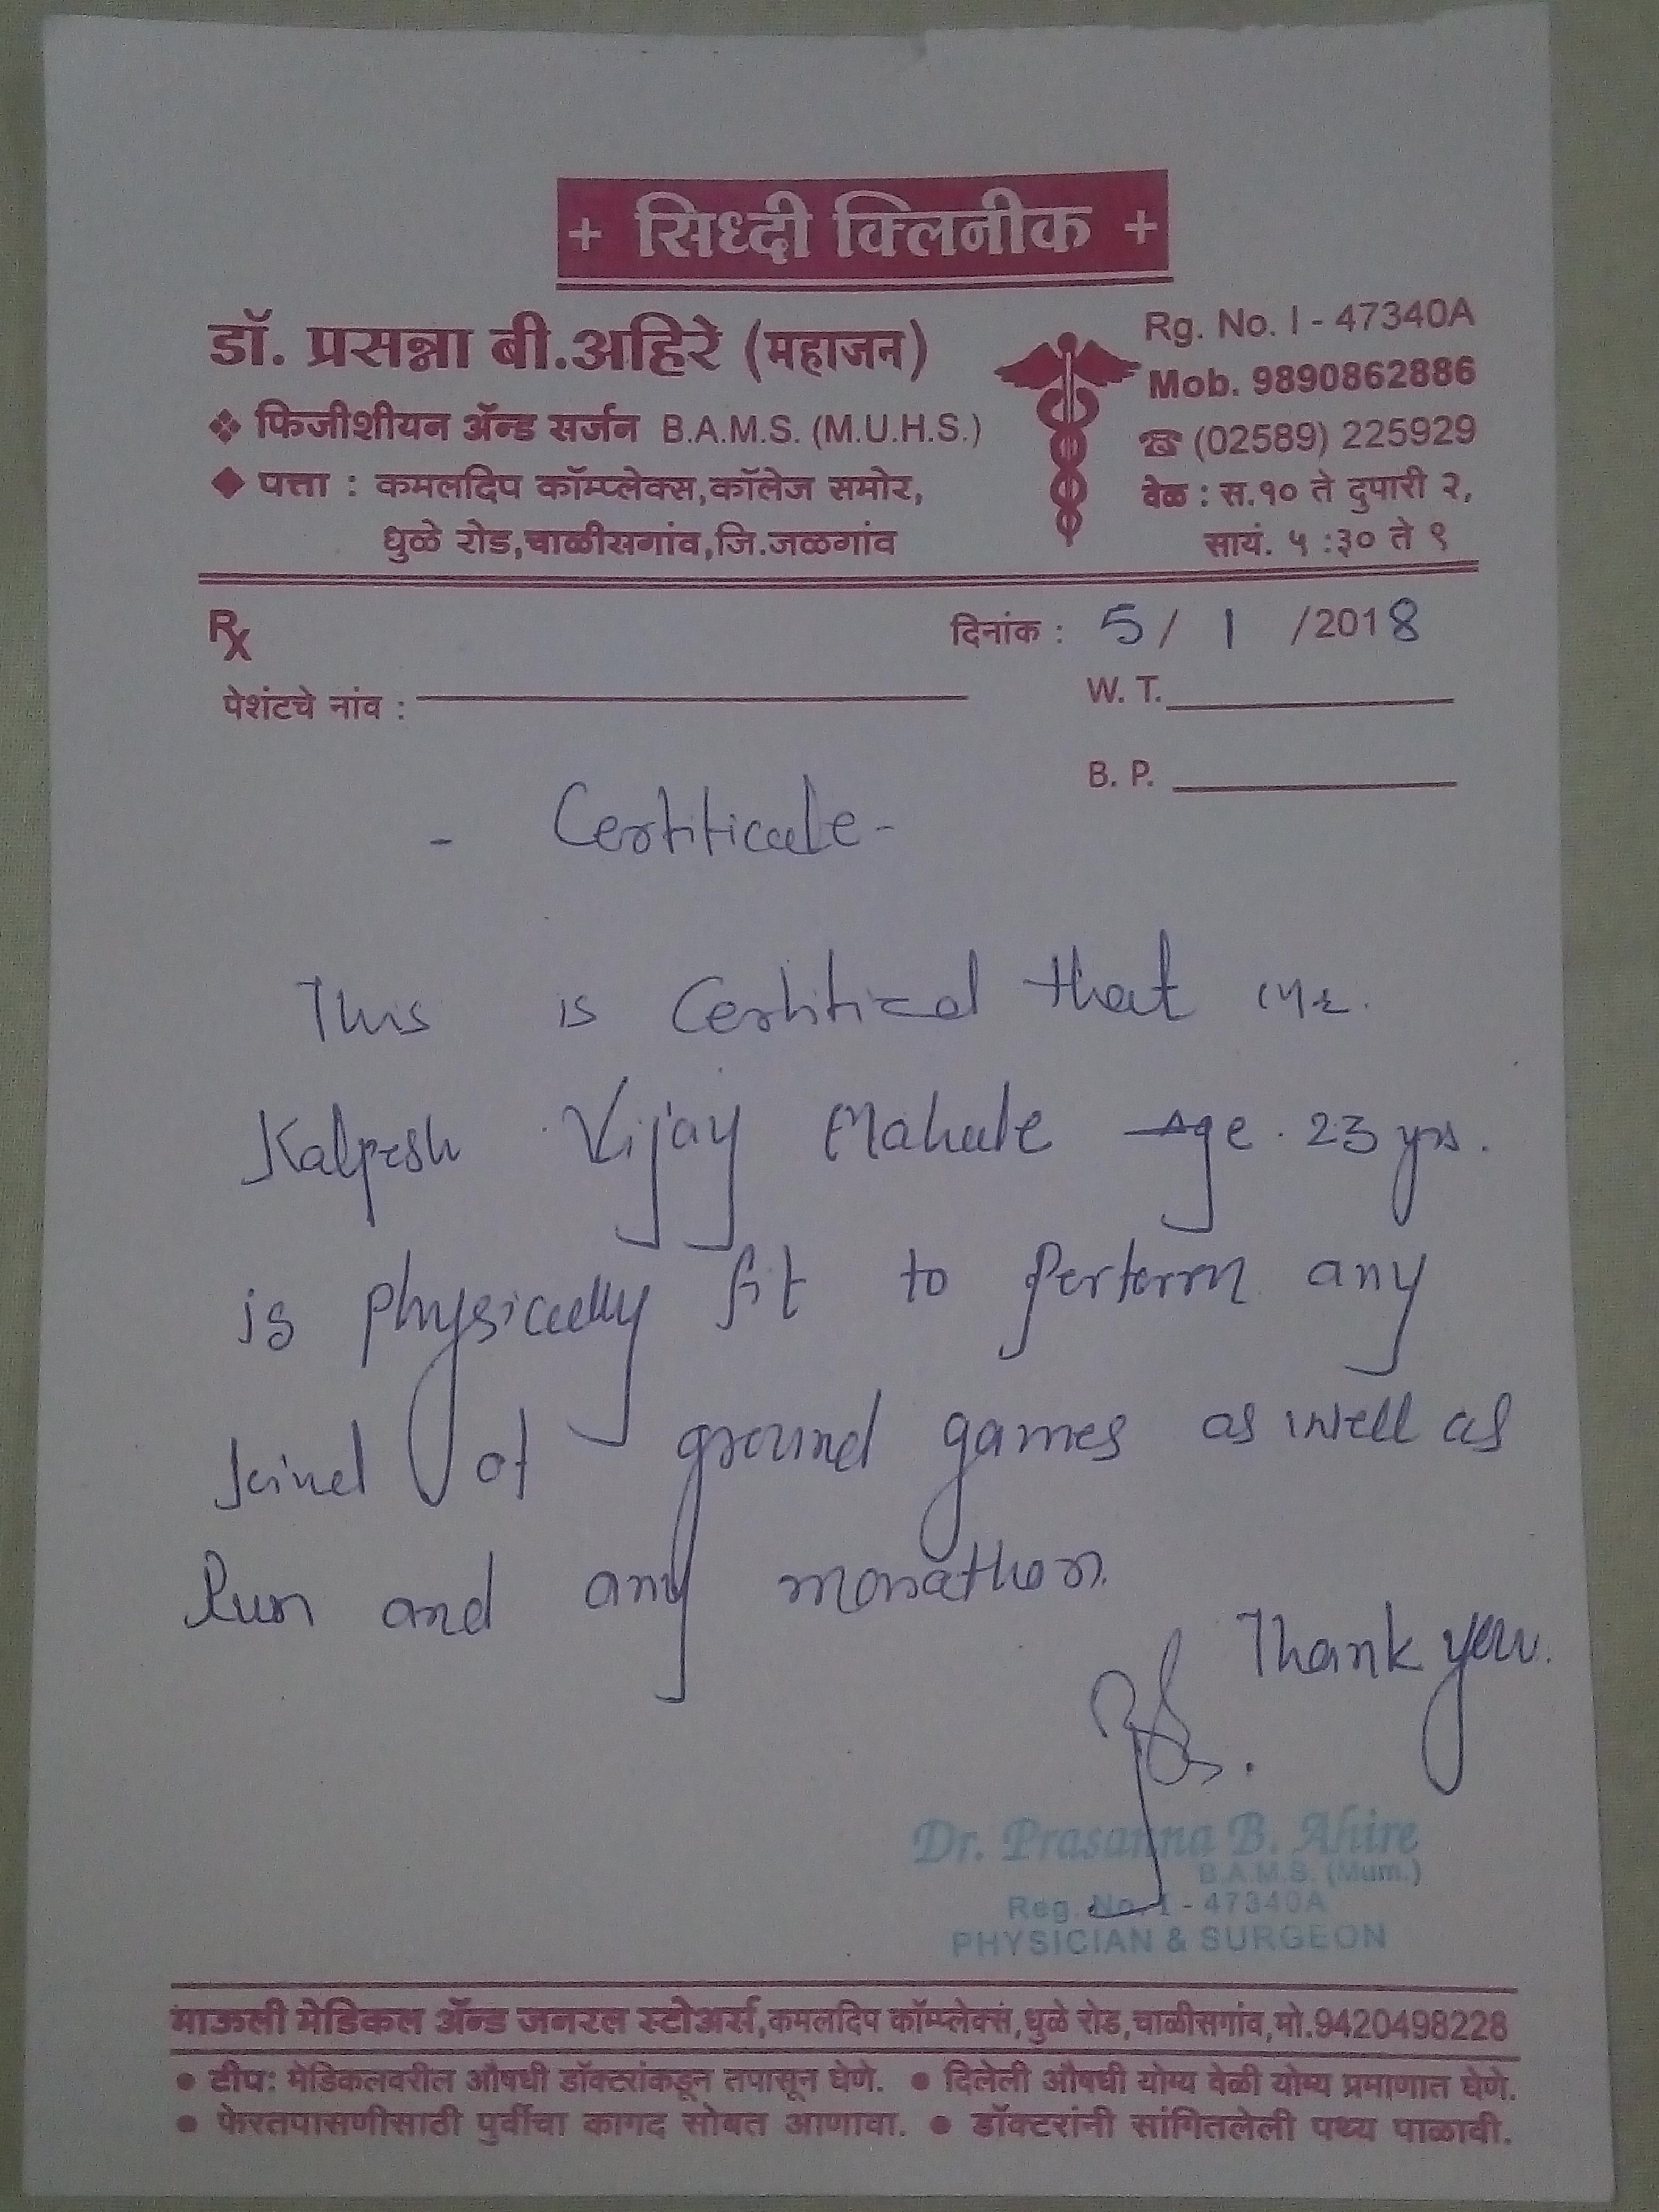 + सिध्दी क्लिनीक +
डॉ. प्रसन्ना बी.अहिरे (महाजन)
❖ फिजीशीयन ॲन्ड सर्जन B.A.M.S. (M.U.H.S.)
◆ पत्ता : कमलदिप कॉम्प्लेक्स,कॉलेज समोर,
धुळे रोड,चाळीसगांव,जि.जळगांव
Rg. No. I - 47340A
Mob. 9890862886
☎ (02589) 225929
वेळ : स.१० ते दुपारी २,
सायं. ५ :३० ते ९
Rx
दिनांक : 5 / 1 /2018
पेशंटचे नांव :
W. T.
B. P.
- Certificate -
This is Certified that Mr.
Kalpesh Vijay Mahale Age 23 yrs.
is physically fit to perform any
kind of ground games as well as
Run and any marathon.
Thank you.
Dr. Prasanna B. Ahire
B.A.M.S. (Mum.)
Reg. No. I - 47340A
PHYSICIAN & SURGEON
माऊली मेडिकल ॲन्ड जनरल स्टोअर्स,कमलदिप कॉम्प्लेक्सं,धुळे रोड,चाळीसगांव,मो.9420498228
• टीप: मेडिकलवरील औषधी डॉक्टरांकडून तपासून घेणे. • दिलेली औषधी योग्य वेळी योग्य प्रमाणात घेणे.
• फेरतपासणीसाठी पुर्वीचा कागद सोबत आणावा. • डॉक्टरांनी सांगितलेली पथ्य पाळावी.